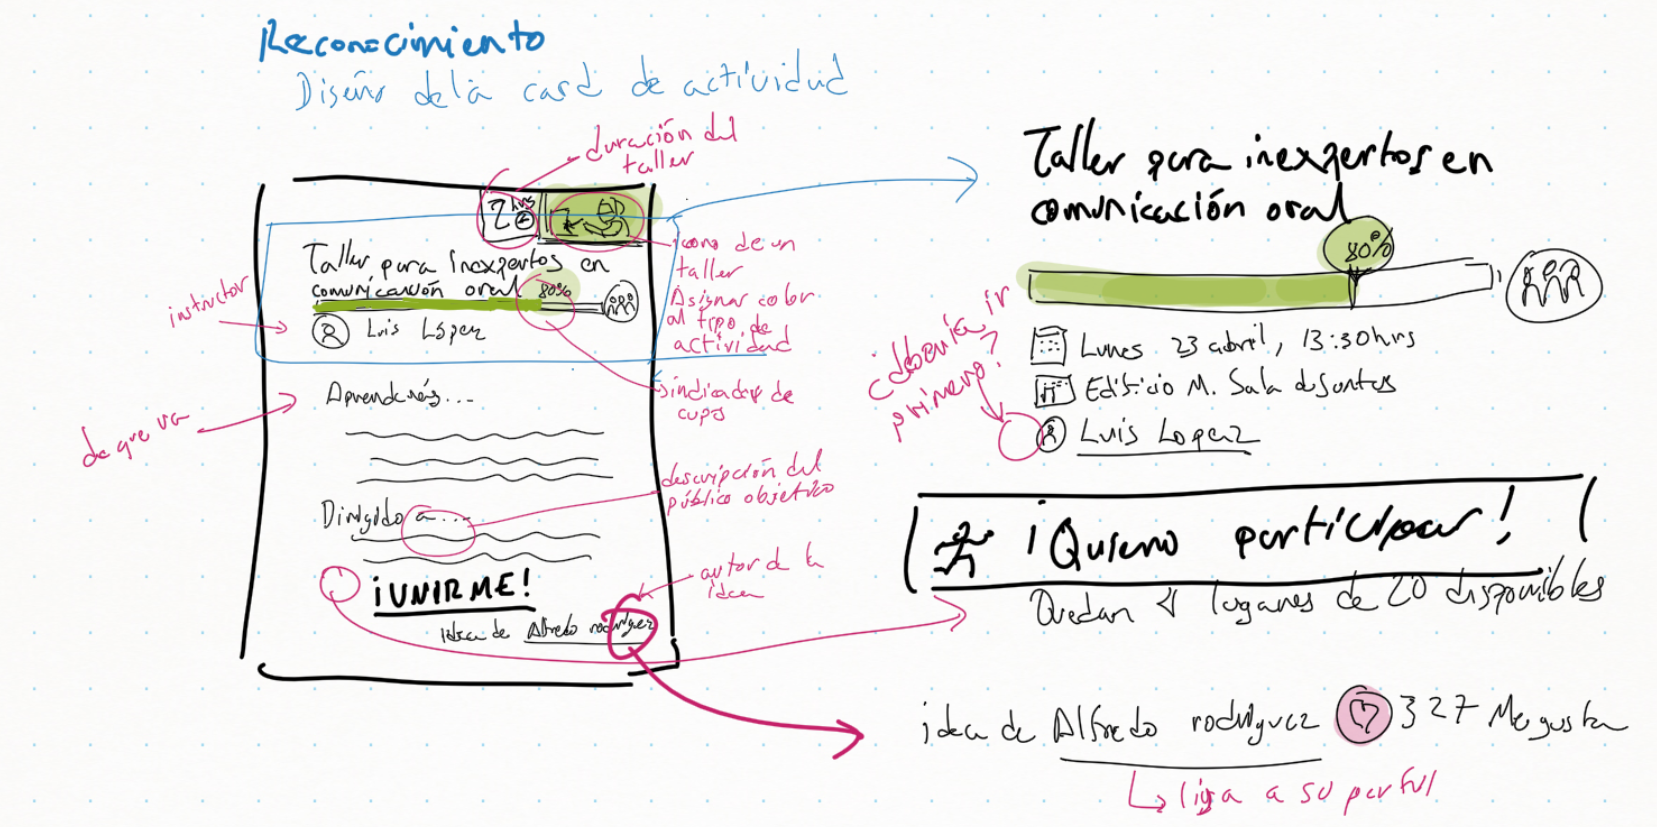 Reconocimiento
Diseño de la card de actividad
duración del
taller
2 hrs
Taller para inexpertos en
comunicación oral
80%
Luis López
instructor
icono de un
taller
Asignar color
al tipo de
actividad
indicador de
cupo
de que va
Aprenderás...
Dirigido a...
descripción del
público objetivo
¡UNIRME!
idea de Alfredo rodriguez
autor de la
idea
Taller para inexpertos en
comunicación oral
80%
¿debería ir
primero?
Lunes 23 abril, 13:30hrs
Edificio M. Sala de Juntas
Luis Lopez
¡Quiero participar!
Quedan 4 lugares de 20 disponibles
idea de Alfredo rodriguez 327 Me gusta
liga a su perfil